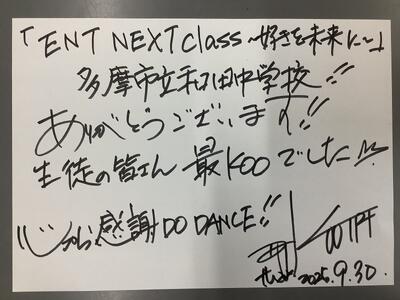 「ENT NEXT Class ~好きを未来に~」
多摩市立和田中学校!!
ありがとうございます!!
生徒の皆さん 最KOOでした
心から感謝 DO DANCE!!
2025.9.30.